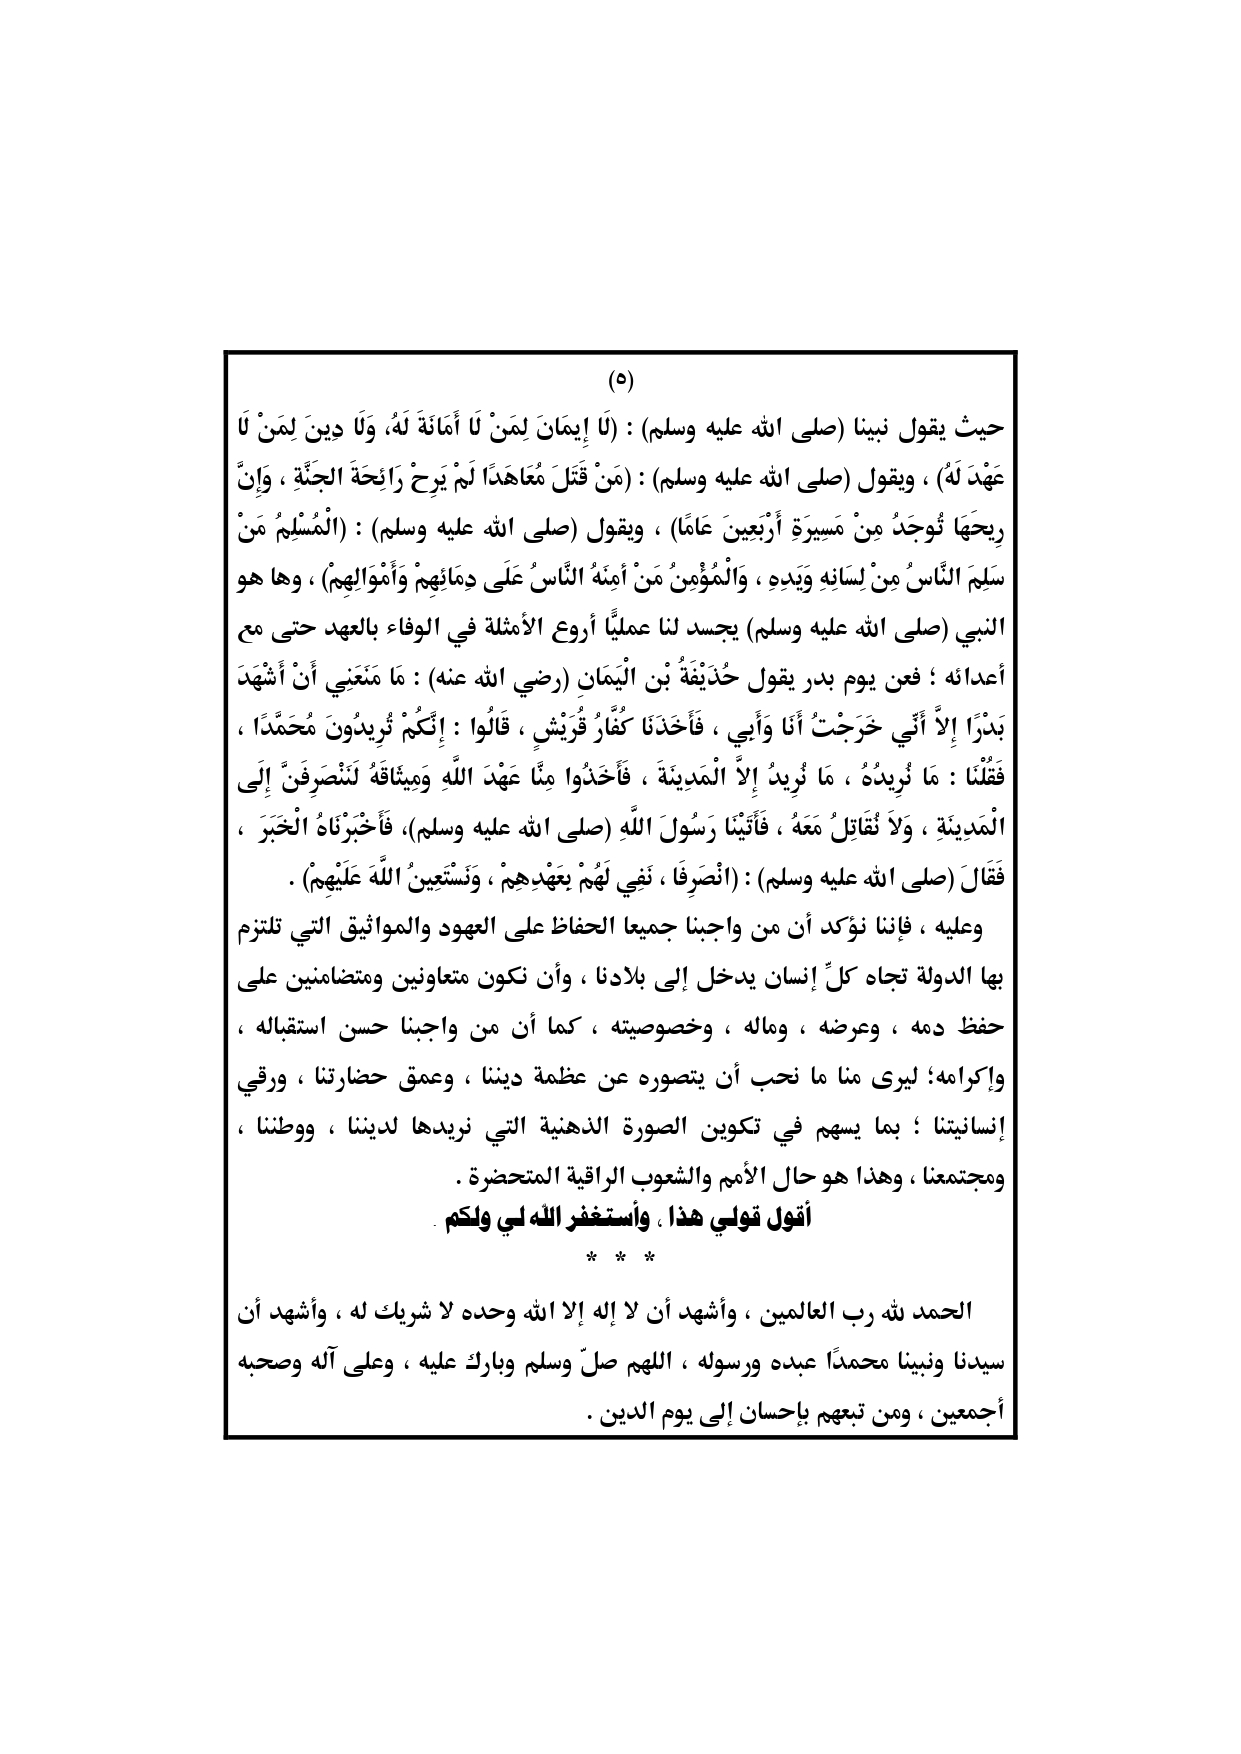 (٥)
حيث يقول نبينا (صلى الله عليه وسلم) : (لَا إِيمَانَ لِمَنْ لَا أَمَانَةَ لَهُ، وَلَا دِينَ لِمَنْ لَا
عَهْدَ لَهُ) ، ويقول (صلى الله عليه وسلم) : (مَنْ قَتَلَ مُعَاهَدًا لَمْ يَرِحْ رَائِحَةَ الجَنَّةِ ، وَإِنَّ
رِيحَهَا تُوجَدُ مِنْ مَسِيرَةِ أَرْبَعِينَ عَامًا) ، ويقول (صلى الله عليه وسلم) : (الْمُسْلِمُ مَنْ
سَلِمَ النَّاسُ مِنْ لِسَانِهِ وَيَدِهِ ، وَالْمُؤْمِنُ مَنْ أمِنَهُ النَّاسُ عَلَى دِمَائِهِمْ وَأَمْوَالِهِمْ) ، وها هو
النبي (صلى الله عليه وسلم) يجسد لنا عمليًّا أروع الأمثلة في الوفاء بالعهد حتى مع
أعدائه ؛ فعن يوم بدر يقول حُذَيْفَةُ بْن الْيَمَانِ (رضي الله عنه) : مَا مَنَعَنِي أَنْ أَشْهَدَ
بَدْرًا إِلاَّ أَنِّي خَرَجْتُ أَنَا وَأَبِي ، فَأَخَذَنَا كُفَّارُ قُرَيْشٍ ، قَالُوا : إِنَّكُمْ تُرِيدُونَ مُحَمَّدًا ،
فَقُلْنَا : مَا نُرِيدُهُ ، مَا نُرِيدُ إِلاَّ الْمَدِينَةَ ، فَأَخَذُوا مِنَّا عَهْدَ اللَّهِ وَمِيثَاقَهُ لَنَنْصَرِفَنَّ إِلَى
الْمَدِينَةِ ، وَلاَ نُقَاتِلُ مَعَهُ ، فَأَتَيْنَا رَسُولَ اللَّهِ (صلى الله عليه وسلم)، فَأَخْبَرْنَاهُ الْخَبَرَ ،
فَقَالَ (صلى الله عليه وسلم) : (انْصَرِفَا ، نَفِي لَهُمْ بِعَهْدِهِمْ ، وَنَسْتَعِينُ اللَّهَ عَلَيْهِمْ) .
وعليه ، فإننا نؤكد أن من واجبنا جميعا الحفاظ على العهود والمواثيق التي تلتزم
بها الدولة تجاه كلِّ إنسان يدخل إلى بلادنا ، وأن نكون متعاونين ومتضامنين على
حفظ دمه ، وعرضه ، وماله ، وخصوصيته ، كما أن من واجبنا حسن استقباله ،
وإكرامه؛ ليرى منا ما نحب أن يتصوره عن عظمة ديننا ، وعمق حضارتنا ، ورقي
إنسانيتنا ؛ بما يسهم في تكوين الصورة الذهنية التي نريدها لديننا ، ووطننا ،
ومجتمعنا ، وهذا هو حال الأمم والشعوب الراقية المتحضرة .
أقول قولي هذا ، وأستغفر الله لي ولكم .
* * *
الحمد لله رب العالمين ، وأشهد أن لا إله إلا الله وحده لا شريك له ، وأشهد أن
سيدنا ونبينا محمدًا عبده ورسوله ، اللهم صلّ وسلم وبارك عليه ، وعلى آله وصحبه
أجمعين ، ومن تبعهم بإحسان إلى يوم الدين .